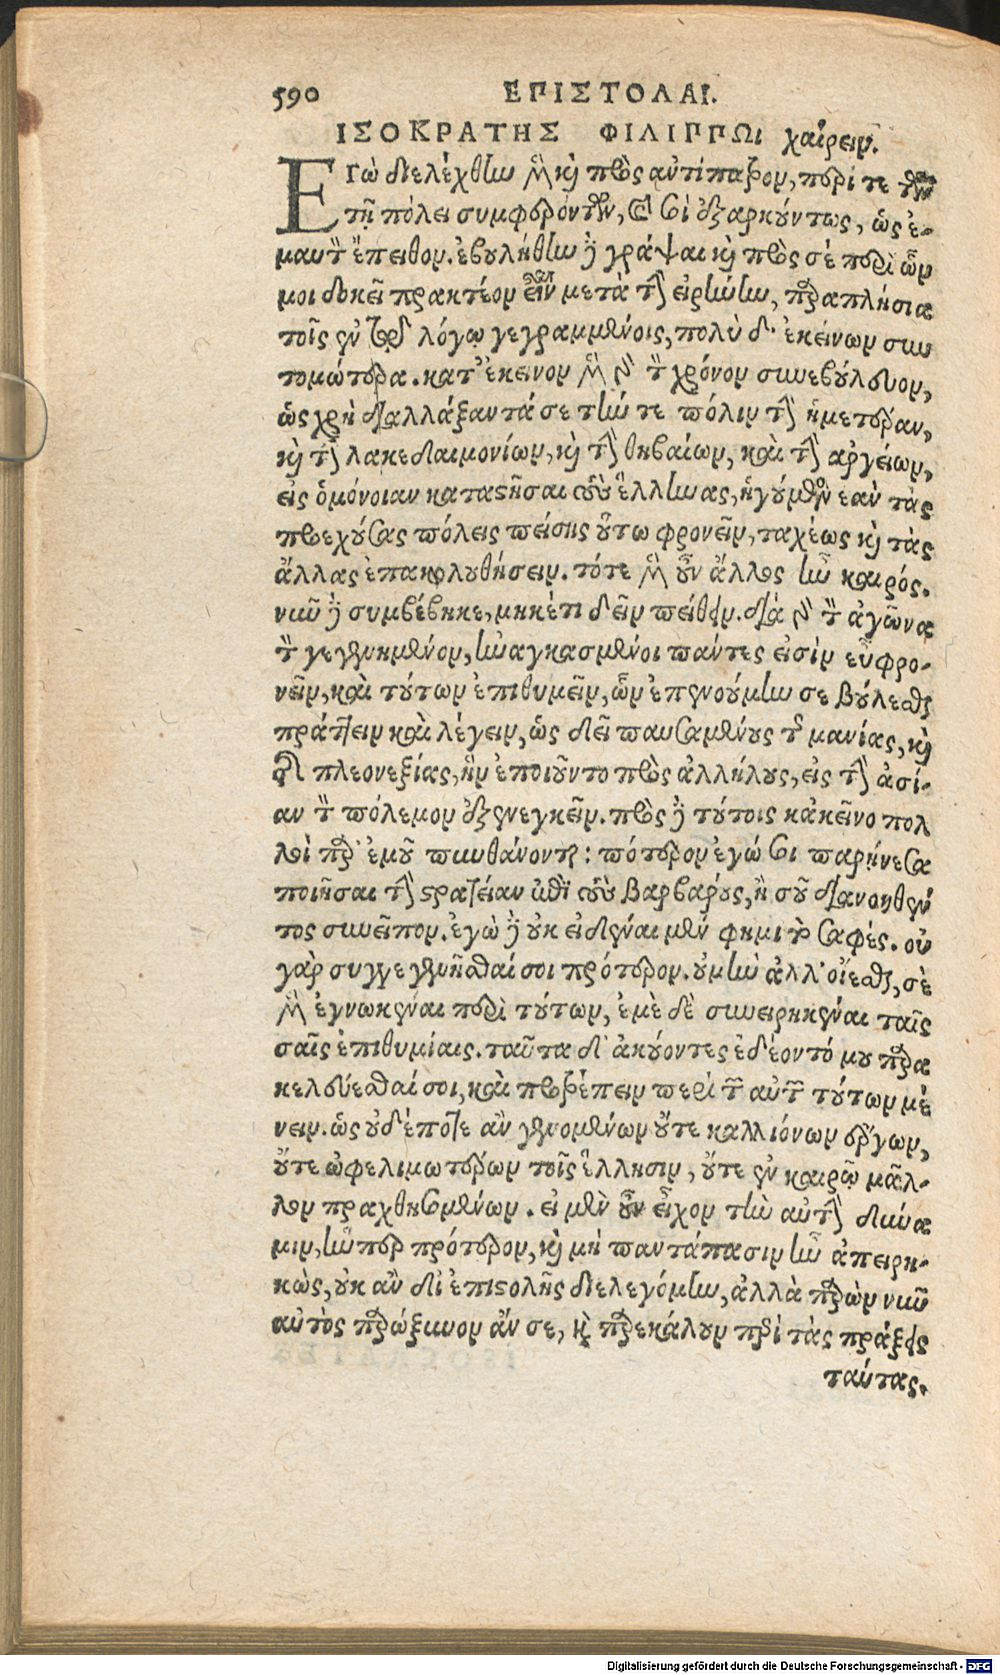 590 ΕΠΙΣΤΟΛΑΙ.
ΙΣΟΚΡΑΤΗΣ ΦΙΛΙΠΠΩι χαίρειν.
Εγὼ διελέχθην μὲν καὶ πρὸς αὐτίπατρον, περί τε τῶν
τῇ πόλει συμφερόντων, καὶ σοὶ ἐξαρκούντως, ὡς ἐ-
μαυτὸν ἔπειθον. ἐβουλήθην δὲ γράψαι καὶ πρὸς σὲ περὶ ὧν
μοι δοκεῖ πρακτέον εἶναι μετὰ τὴν εἰρήνην, παραπλήσια
τοῖς ἐν τῷ λόγῳ γεγραμμένοις, πολὺ δ' ἐκείνων συν
τομώτερα. κατ' ἐκεῖνον μὲν γὰρ τὸν χρόνον συνεβούλευον,
ὡς χρὴ διαλλάξαντά σε τήν τε πόλιν τὴν ἡμετέραν,
καὶ τὴν λακεδαιμονίων, καὶ τὴν θηβαίων, καὶ τὴν ἀργείων,
εἰς ὁμόνοιαν καταστῆσαι τοὺς ἕλληνας, ἡγούμενος ἐὰν τὰς
προεχούσας πόλεις πείσῃς οὕτω φρονεῖν, ταχέως καὶ τὰς
ἄλλας ἐπακολουθήσειν. τότε μὲν οὖν ἄλλος ἦν καιρός.
νῦν δὲ συμβέβηκε, μηκέτι δεῖν πείθειν. διὰ γὰρ τὸν ἀγῶνα
τὸν γεγενημένον, ἠναγκασμένοι πάντες εἰσὶν εὖ φρο-
νεῖν, καὶ τούτων ἐπιθυμεῖν, ὧν ἐπενούμην σε βούλεσθαι
πράττειν καὶ λέγειν, ὡς δεῖ παυσαμένους τῆς μανίας, καὶ
τῆς πλεονεξίας, ἣν ἐποιοῦντο πρὸς ἀλλήλους, εἰς τὴν ἀσί-
αν τὸν πόλεμον ἐξενεγκεῖν. πρὸς δὲ τούτοις κἀκεῖνο πολ
λοὶ παρ' ἐμοῦ πυνθάνονται: πότερον ἐγώ σοι παρῄνεσα
ποιῆσαι τὴν στρατείαν ἐπὶ τοὺς βαρβάρους, ἢ σοῦ διανοηθέν
τος συνεῖπον. ἐγὼ δὲ οὐκ εἰδέναι μέν φημι τὸ σαφές. οὐ
γὰρ συγγεγενῆσθαί σοι πρότερον. οὐ μὴν ἀλλ' οἴεσθαι, σὲ
μὲν ἐγνωκέναι περὶ τούτων, ἐμὲ δὲ συνειρηκέναι ταῖς
σαῖς ἐπιθυμίαις. ταῦτα δ' ἀκούοντες ἐδέοντό μου παρα
κελεύεσθαί σοι, καὶ προτρέπειν περὶ τῶν αὐτῶν τούτων μέ
νειν. ὡς οὐδέποτε ἂν γενομένων οὔτε καλλιόνων ἔργων,
οὔτε ὠφελιμωτέρων τοῖς ἕλλησιν, οὔτε ἐν καιρῷ μᾶλ-
λον πραχθησομένων. εἰ μὲν οὖν εἶχον τὴν αὐτὴν δύνα
μιν, ἥνπερ πρότερον, καὶ μὴ παντάπασιν ἦν ἀπειρη-
κὼς, οὐκ ἂν δι' ἐπιστολῆς διελεγόμην, ἀλλὰ παρὼν νῦν
αὐτὸς παρώξυνον ἄν σε, καὶ παρεκάλουν περὶ τὰς πράξεις
ταύτας.
Digitalisierung gefördert durch die Deutsche Forschungsgemeinschaft - DFG